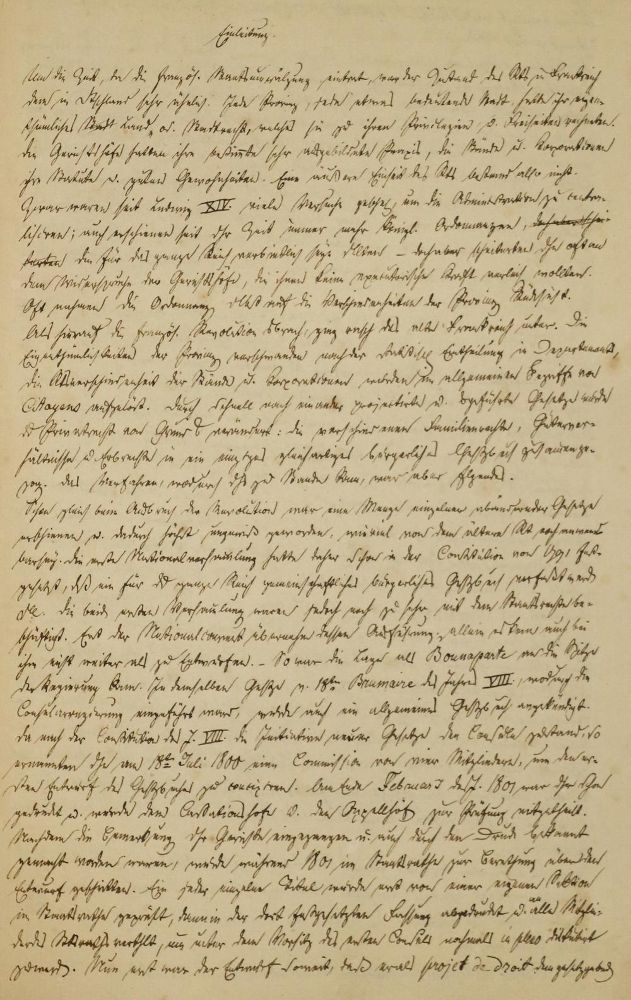 Einleitung.
Um die Zeit, da die französ. Staatsumwälzung eintrat, war der Zustand des Rts in Frankreich
dem in Dtschland sehr ähnlich. Jede Provinz, jede etwas bedeutende Stadt hatte ihr eigen-
thümliches Stadt Land, od. Stadtrecht, welches sie zu ihren Privilegien u. Freiheiten rechneten.
Die Gerichtshöfe hatten ihre bestimmte sehr ausgebildete Praxis, die Stände u. Corporationen
ihre Statute u. guten Gewohnheiten. Eine äußere Einheit des Rts bestand also nicht.
Zwar waren seit Ludwig XIV. viele Versuche geschehen, um die Administration zu centra-
lisiren; auch erschienen seit dsr Zeit immer mehr königl. Ordonnanzen,
die für das ganze Reich verbindlich seyn sollten – doch aber scheiterten dse oft an
dem Widerspruche der Gerichtshöfe, die ihnen keine executorische Kraft verleihen wollten.
Oft nahmen die Ordonnanzen selbst auf die Verschiedenheiten der Provinz Rücksicht.
Als hierauf die französ. Revolution ausbrach, ging rasch das alte Frankreich unter. Die
Eigenthümlichkeiten der Provinz verschwanden nach der Eintheilung in Departements,
die Rtsverschiedenheit der Stände u. Corporationen wurden im allgemeinen Begriffe von
Citoyens aufgelöst. Durch schnell nach einander projectirte u. ausgeführte Gesetze wurde
das Privatrecht von Grund aus verändert: die verschiedenen Familienrechte, Güterver-
hältnisse u. Erbrechte in ein einziges gleichartiges bürgerliches Gesetzbuch zusammenge-
zog. Das Verfahren, wodurch dss zu Stande kam, war aber folgendes.
Schon gleich beim Ausbruch der Revolution war eine Menge einzelner abändernder Gesetze
erschienen u. dadurch höchst ungewiß geworden, wieviel von dem ältern Rt noch anwend-
bar sey. Die erste Nationalversammlung hatte daher schon in der Constitution von 1791 fest-
gesetzt, daß ein für das ganze Reich gemeinschaftliches bürgerliches Gesetzbuch verfaßt werden
solle. Die beiden ersten Versammlung waren jedoch noch zu sehr mit dem Staatsrechte be-
schäftigt. Erst der Nationalconvent übernahm dessen Ausführung, allein es kam auch bei
ihm nicht weiter als zu Entwürfen. – So war die Lage als Bonaparte an die Spitze
der Regierung kam. In demselben Gesetze v. 18ten Brumaire des Jahres VIII, wodurch die
Consularregierung eingeführt ward, wurde auch ein allgemeines Gesetzbuch angekündigt.
Da nach der Constitution des J. VIII die Initiative neuer Gesetze den Consuln zustand, so
ernannten dse am Juli 1800 eine Commission von vier Mitgliedern, um den er-
sten Entwurf des Gesetzbuches zu concipiren. Am Ende Februars des J. 1801 war dsr schon
gedruckt u. wurde dem Cassationshofe u. den Appellhöfen zur Prüfung mitgetheilt.
Nachdem die Bemerkung dsr Gerichte eingegangen u. auch durch den Druck bekannt
gemacht worden waren, wurde während 1801 im Staatsrathe zur Berathung über den
Entwurf geschritten. Ein jeder einzelne Titel wurde erst von einer eigenen Sektion
im Staatsrathe geprüft, dann in der dort festgesetzten Fassung abgedruckt u. an alle Mitglie-
der des Staatsraths vertheilt, um unter dem Vorsitz des ersten Consuls nochmals in pleno diskutirt
zu werden. Nun erst war der Entwurf so weit, daß er als projet de droit dem gesetzgebend